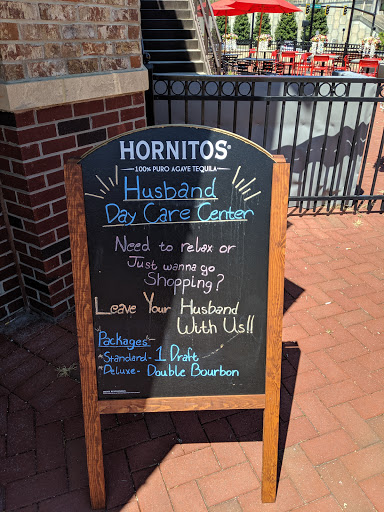 HORNITOS®
100% PURO AGAVE TEQUILA
Husband
Day Care Center
Need to relax or
Just wanna go
Shopping?
Leave Your Husband
With Us!!
Packages:-
*Standard- 1 Draft
*Deluxe- Double Bourbon